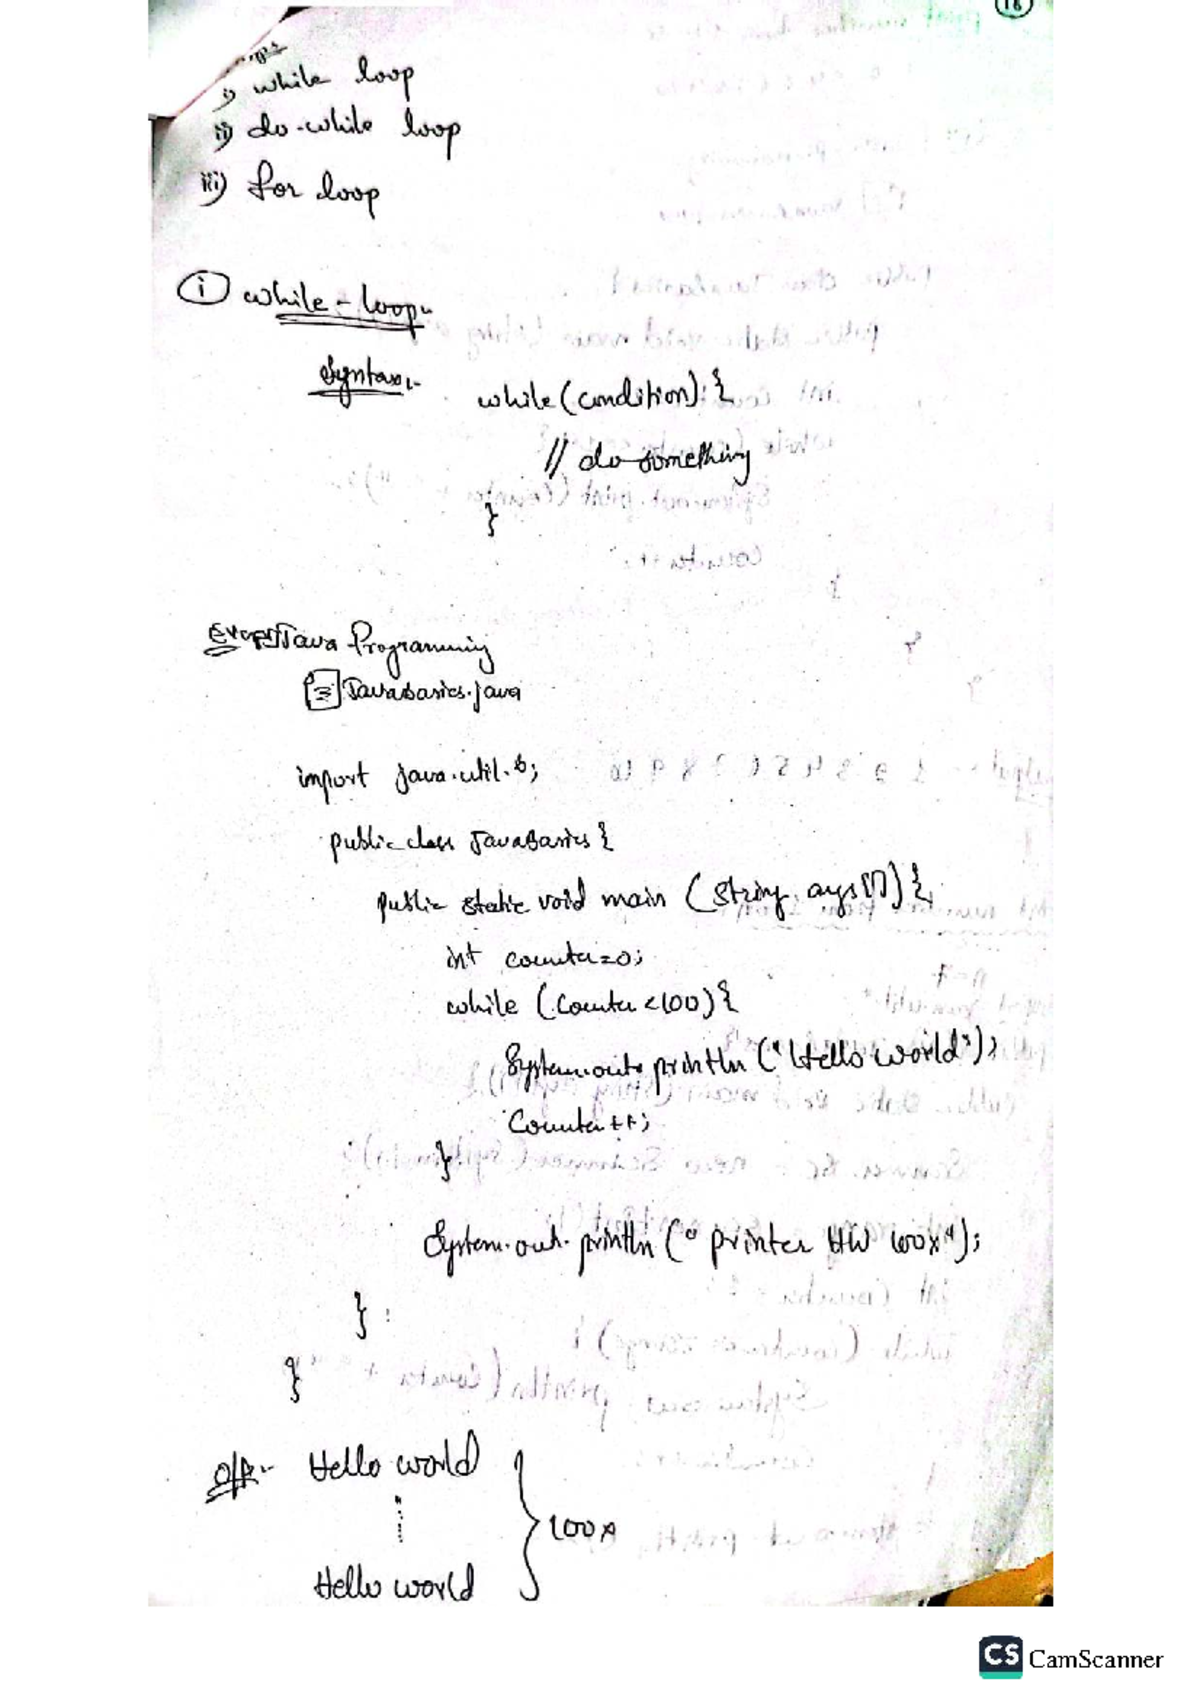 18
i) while loop
ii) do-while loop
iii) for loop
i while-loop:-
Syntax:- while (condition) {
// do something
}
Java Programming
JavaBasics.java
import java.util.*;
public class JavaBasics {
public static void main (String args[]) {
int counter=0;
while (counter<100) {
System.out.println ("Hello world");
Counter++;
}
System.out.println (" printer HW 100x");
}
}
O/P:- Hello world
Hello world
100x
CS CamScanner